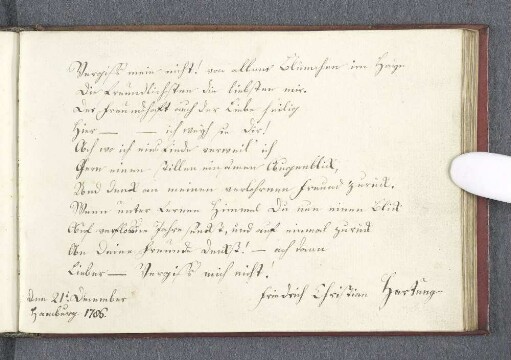 Vergiss mein nicht! von allen Blümchen im Hayn
Die freundlichsten die liebsten mir.
Der Freundschaft auch der Liebe heilig
Hier — — ich weyh sie Dir!
Ach wo ich eins finde verweil ich
Gern einen stillen einsamen Augenblick,
Und denk an meinen verlohrnen Freund zurück.
Wenn unter fernen Himmel Du nun einen Blick
Auf Jahre und auf einmal zurück
An Deine Freunde denkst! — ach dann
Lieber — Vergiss mich nicht!
den 21t December
Hamburg 1786.
Friedrich Christian Hartung